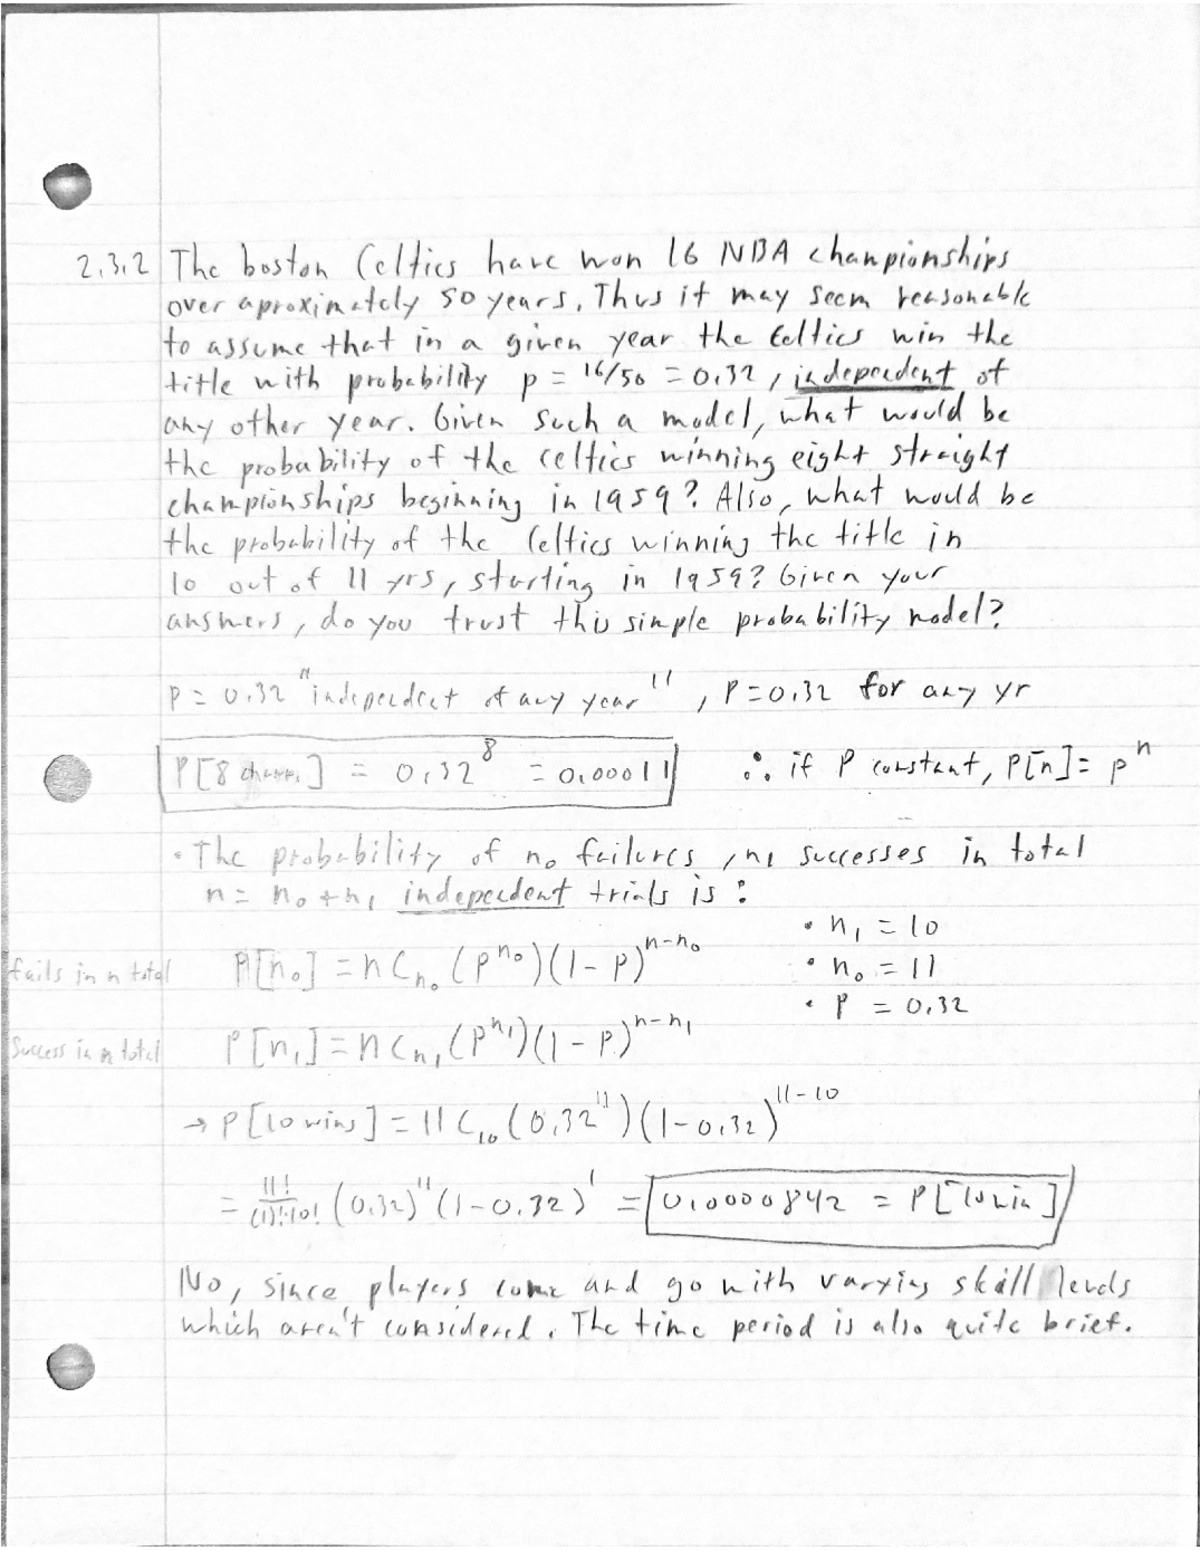 2.3.2 The boston Celtics have won 16 NBA championships
over aproximately 50 years. Thus it may seem reasonable
to assume that in a given year the Celtics win the
title with probability p = 16/50 = 0.32, independent of
any other year. Given such a model, what would be
the probability of the celtics winning eight straight
championships beginning in 1959? Also, what would be
the probability of the Celtics winning the title in
10 out of 11 yrs, starting in 1959? Given your
answers, do you trust this simple probability model?
P = 0.32 "independent of any year", P=0.32 for any yr
P[8 champ.] = 0.32^8 = 0.00011 ∴ if P constant, P[n] = p^n
• The probability of n₀ failures, n₁ successes in total
n = n₀ + n₁ independent trials is:
• n₁ = 10
fails in n total P[n₀] = nCn₀ (p^n₀)(1-p)^n-n₀ • n₀ = 11
• P = 0.32
Success in n total P[n₁] = nCn₁ (p^n₁)(1-p)^n-n₁
→ P[10 wins] = 11C₁₀ (0.32^11)(1-0.32)^11-10
= 11!/(1)!·10! (0.32)^11 (1-0.32)^1 = 0.0000842 = P[10win]
No, since players come and go with varying skill levels
which aren't considered. The time period is also quite brief.